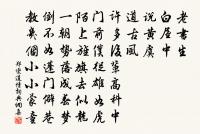 老書生
白屋中
說黃虞
道古風
許多後輩高科中
門前僕從雄如虎
陌上旌旗去似龍
一朝勢落成春夢
倒不如蓬門僻巷
教幾個小小蒙童
鄭燮道情詞典句集